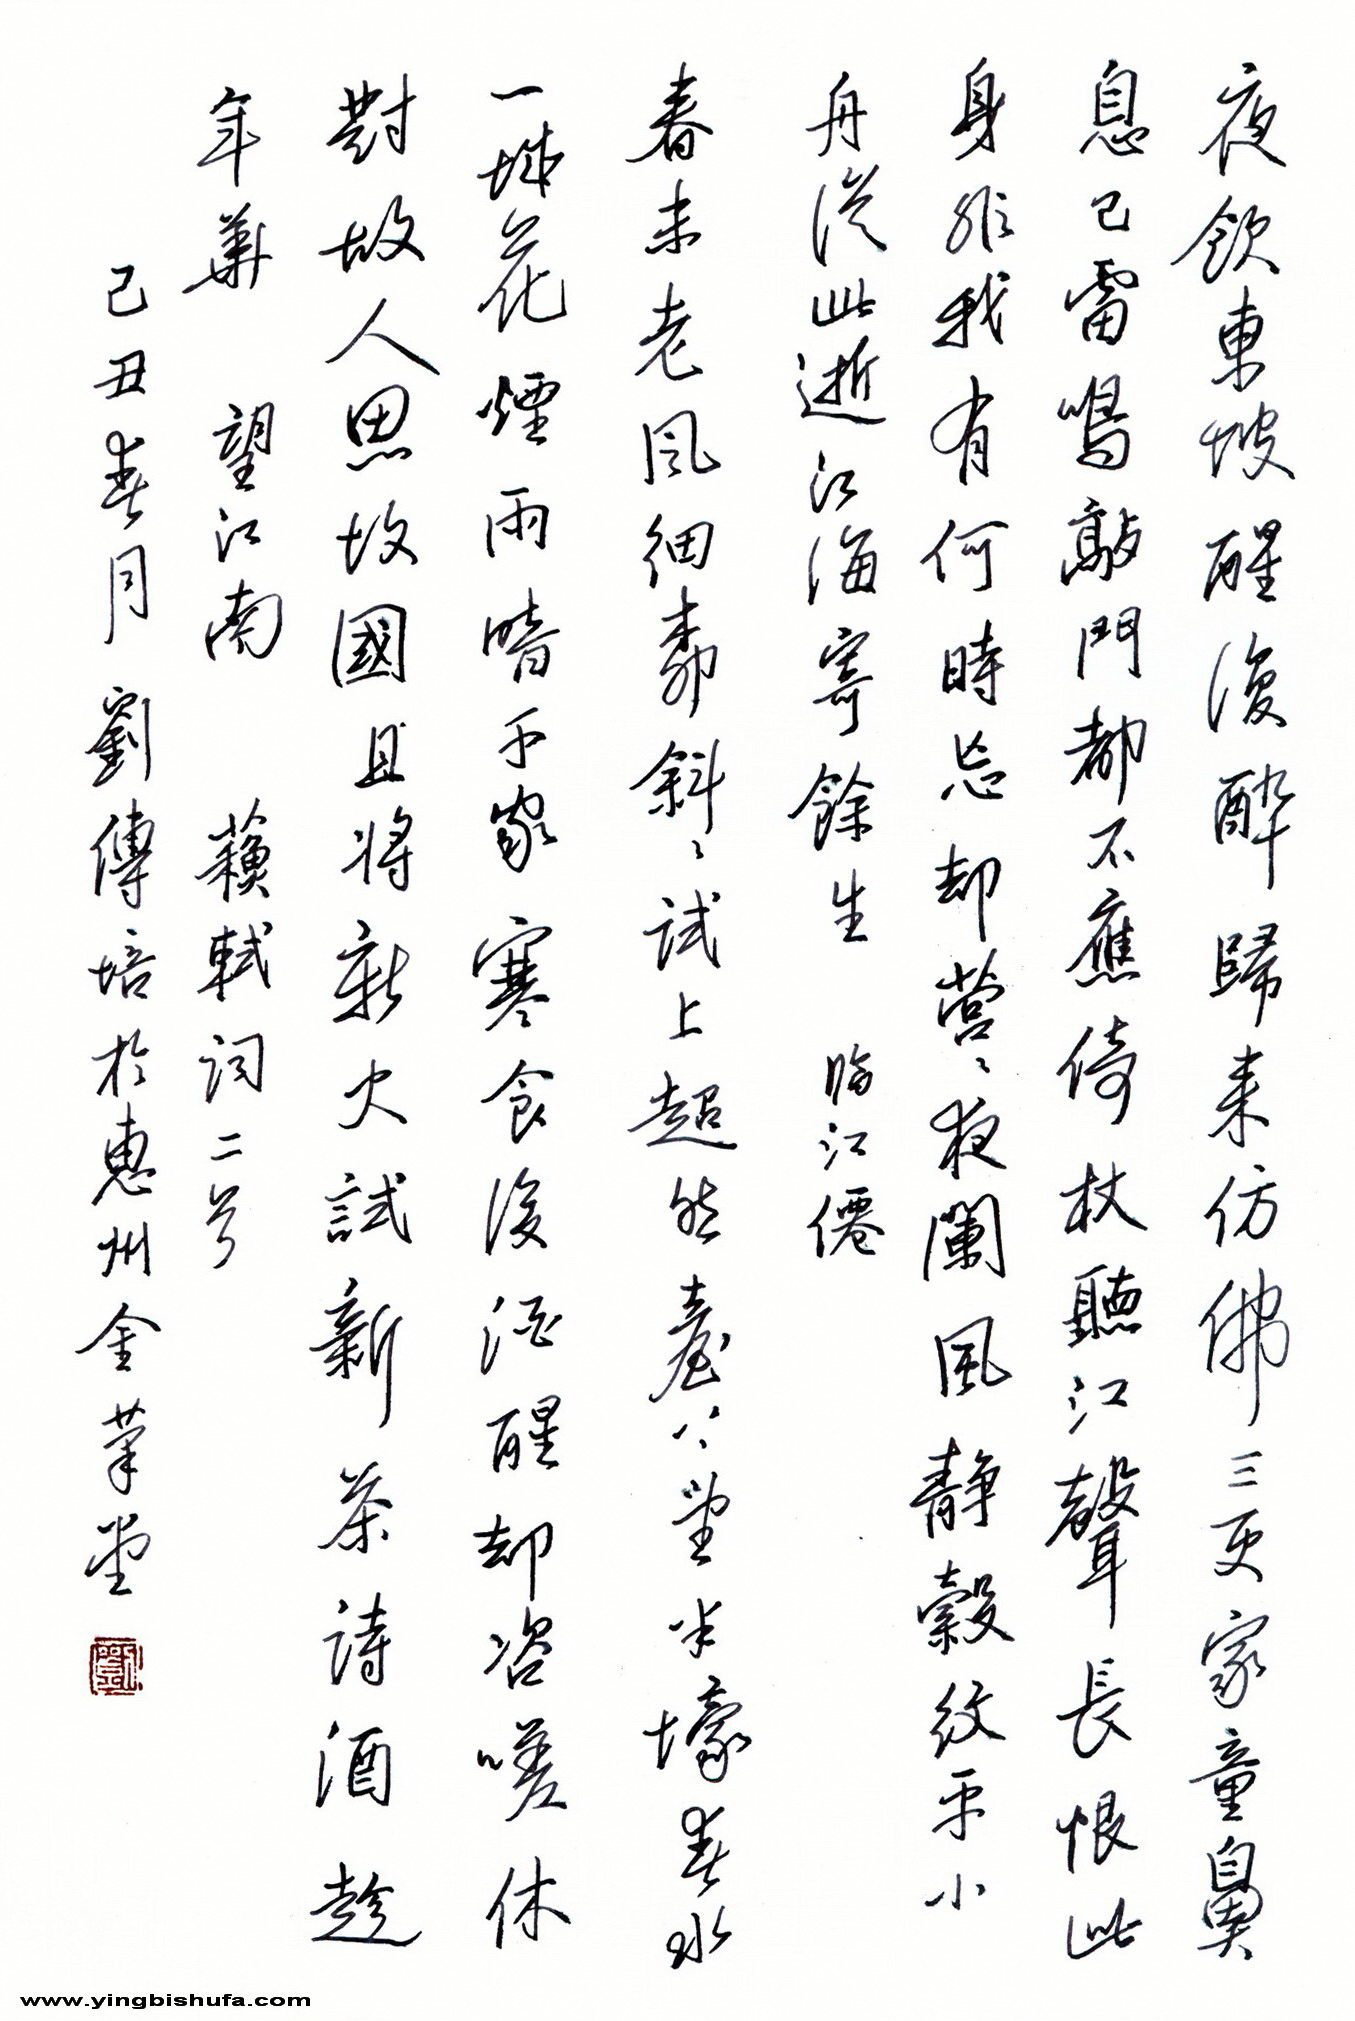 夜飲東坡醒復醉歸来仿佛三更家童鼻
息已雷鳴敲門都不應倚杖聽江聲長恨此
身非我有何時忘却營〻夜闌風靜縠紋平小
舟從此逝江海寄餘生 臨江僊
春未老風細柳斜〻試上超然臺〻望半壕春水
一城花煙雨暗千家寒食後酒醒却咨嗟休
對故人思故國且將新火試新茶詩酒趁
年華 望江南 蘇軾詞二首
己丑春月劉傳培於惠州金華堂
www.yingbishufa.com